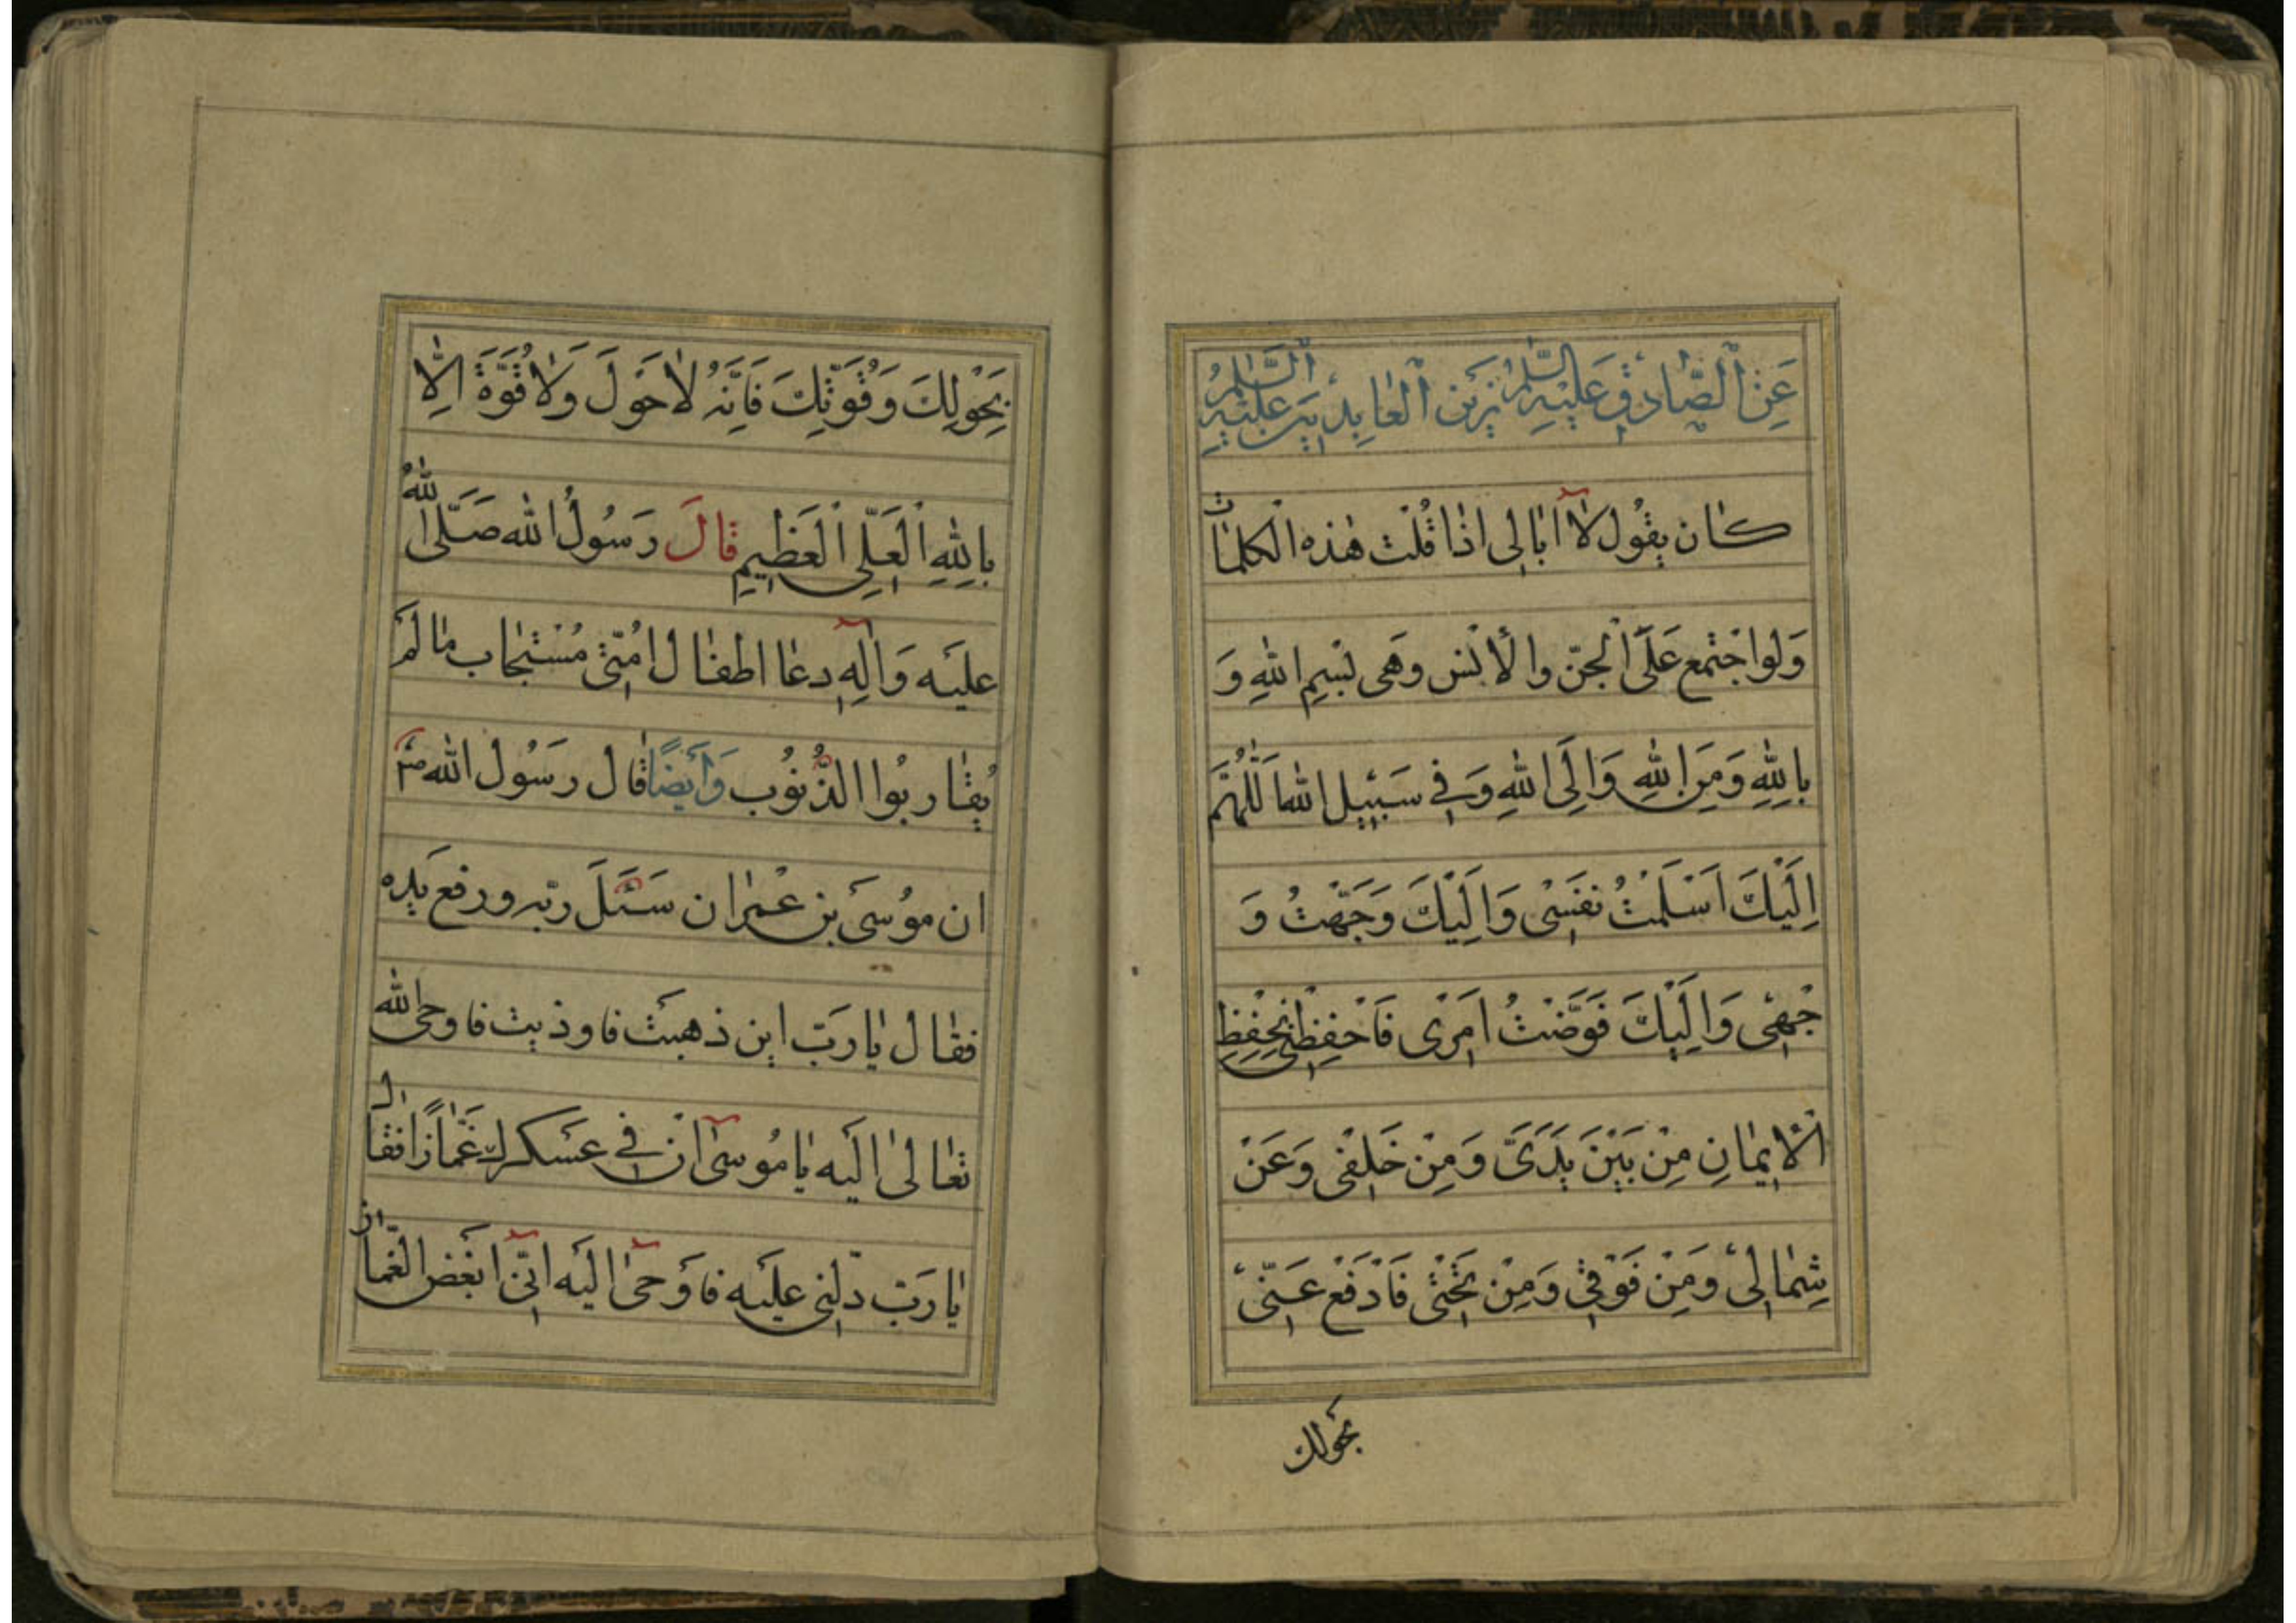 عَنِ ٱلصّٰادِقِ عَلَيْهِ السَّلٰمُ زَيْنِ ٱلْعٰابِدِيْنَ عَلَيْهِ ٱلسَّلٰمُ
كٰان يقُول لاٰ اُبٰالِى اذٰا قُلْت هٰذه الْكلمٰات
وَلو اجْتمع عَلَىَّ الْجنّ والْأنْس وهَى بْسِمِ اللهِ وَ
بِاللهِ وَمِنَ اللهِ وَاِلَى اللهِ وَفِى سَبِيْلِ اللهِ اَللّٰهُمَّ
اِلَيْكَ اَسْلَمْتُ نفَسِْى وَاِلَيْكَ وَجَّهْتُ وَ
جْهِى وَاِلَيْكَ فَوَّضْتُ اَمْرِى فَاحْفِظْنِى بِحِفْظِ
الْاِيْمٰانِ مِنْ بَيْنَ يَدَىَّ وَمِنْ خَلْفِى وَعَنْ
شِمٰالِىْ وَمَِنْ فَوْقِى وَمِنْ تَحْتِى فَادْفَعْ عَنِّى
بحَولك
بِحَوْلِكَ وَقُوَّتِكَ فَاِنَّهُ لاٰ حَوْلَ وَلاٰ قُوَّةَ اِلّاٰ
بِاللهِ الْعَلِّىِ الْعَظِيْمِ قٰالَ رَسُولُ الله صَلَّى اللهُ
عليَه وَاٰلِهِ دعٰا اطفٰال اُمّتِى مُسْتجٰاب مٰا لَمْ
يُقٰاربُوا الذُّنوُب وَاَيضًا قٰال رسَُول الله ص
ان موُسَى بن عْمرٰان سَئَلَ ربّه ورفع يَده
فقٰال يٰا رَبّ اين ذهبَت فاوذيت فاوحى الله
تعٰالىٰ اليَه يٰا مُوسىٰٓ انْ فى عسَكرك غَمّٰازًا فقٰال
يٰا رَبّ دّلنِى عليَه فاوَحىٰ اليَه انِّى اَبغَض الغّمٰاز